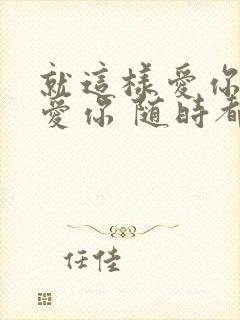 就這樣愛你
愛你 隨時都
任佳